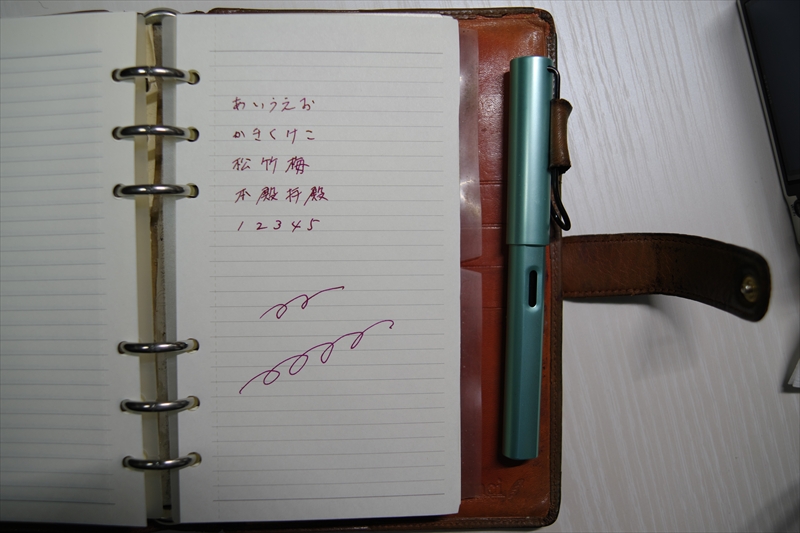 あいうえお
かきくけこ
松竹梅
本殿拝殿
12345